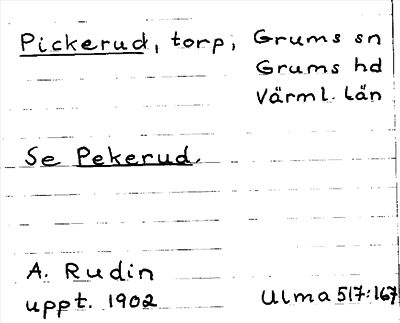 Pickerud, torp, Grums sn
Grums hd
Värml. Län
Se Pekerud.
A. Rudin
uppt. 1902
Ulma 517:167